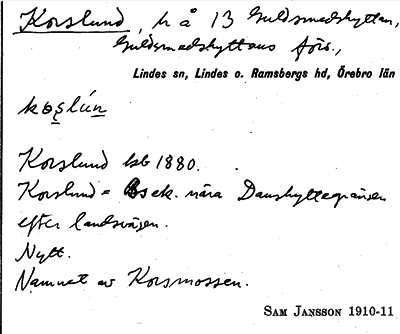 Korslund, h å 13 Guldsmedshyttan,
Guldsmedshyttans förs.,
Lindes sn, Lindes o. Ramsbergs hd, Örebro län
Korslund ksb 1880.
Korslund = Bs ek. nära Danshyttegränsen
efter landsvägen.
Nytt.
Namnet av Korsmossen.
SAM JANSSON 1910-11